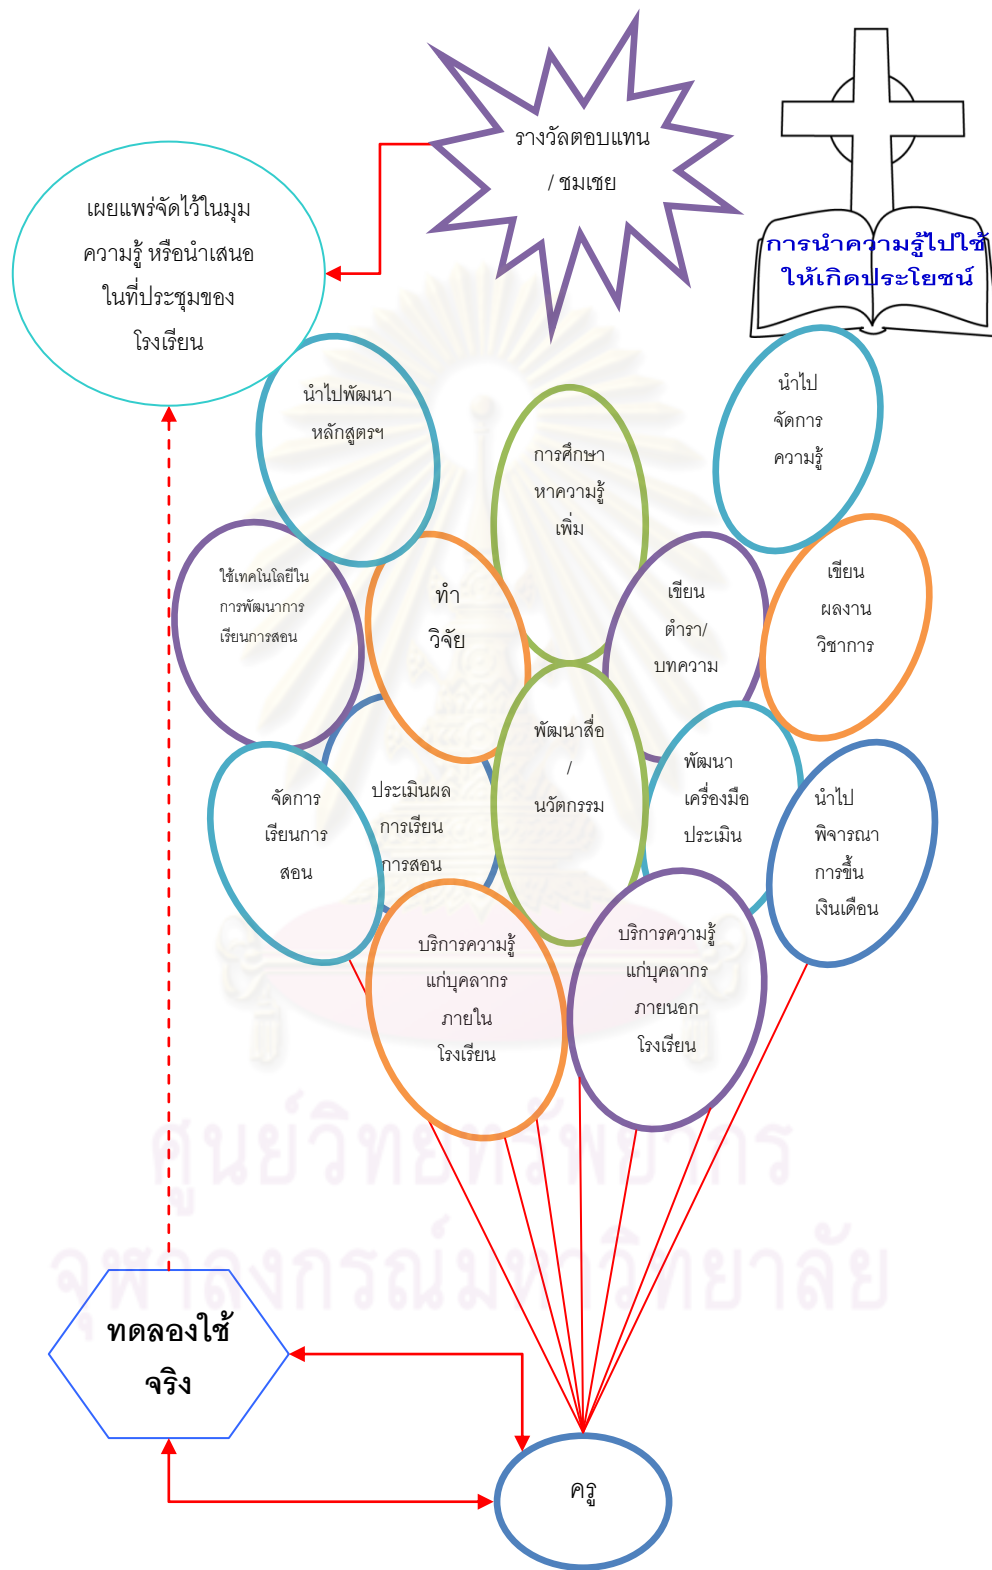 รางวัลตอบแทน
/ ชมเชย
การนำความรู้ไปใช้
ให้เกิดประโยชน์
เผยแพร่จัดไว้ในมุม
ความรู้ หรือนำเสนอ
ในที่ประชุมของ
โรงเรียน
นำไปพัฒนา
หลักสูตรฯ
การศึกษา
หาความรู้
เพิ่ม
นำไป
จัดการ
ความรู้
ใช้เทคโนโลยีใน
การพัฒนาการ
เรียนการสอน
ทำ
วิจัย
เขียน
ตำรา/
บทความ
เขียน
ผลงาน
วิชาการ
จัดการ
เรียนการ
สอน
ประเมินผล
การเรียน
การสอน
พัฒนาสื่อ
/
นวัตกรรม
พัฒนา
เครื่องมือ
ประเมิน
นำไป
พิจารณา
การขึ้น
เงินเดือน
บริการความรู้
แก่บุคลากร
ภายใน
โรงเรียน
บริการความรู้
แก่บุคลากร
ภายนอก
โรงเรียน
ศูนย์วิทยทรัพยากร
จุฬาลงกรณ์มหาวิทยาลัย
ทดลองใช้
จริง
ครู